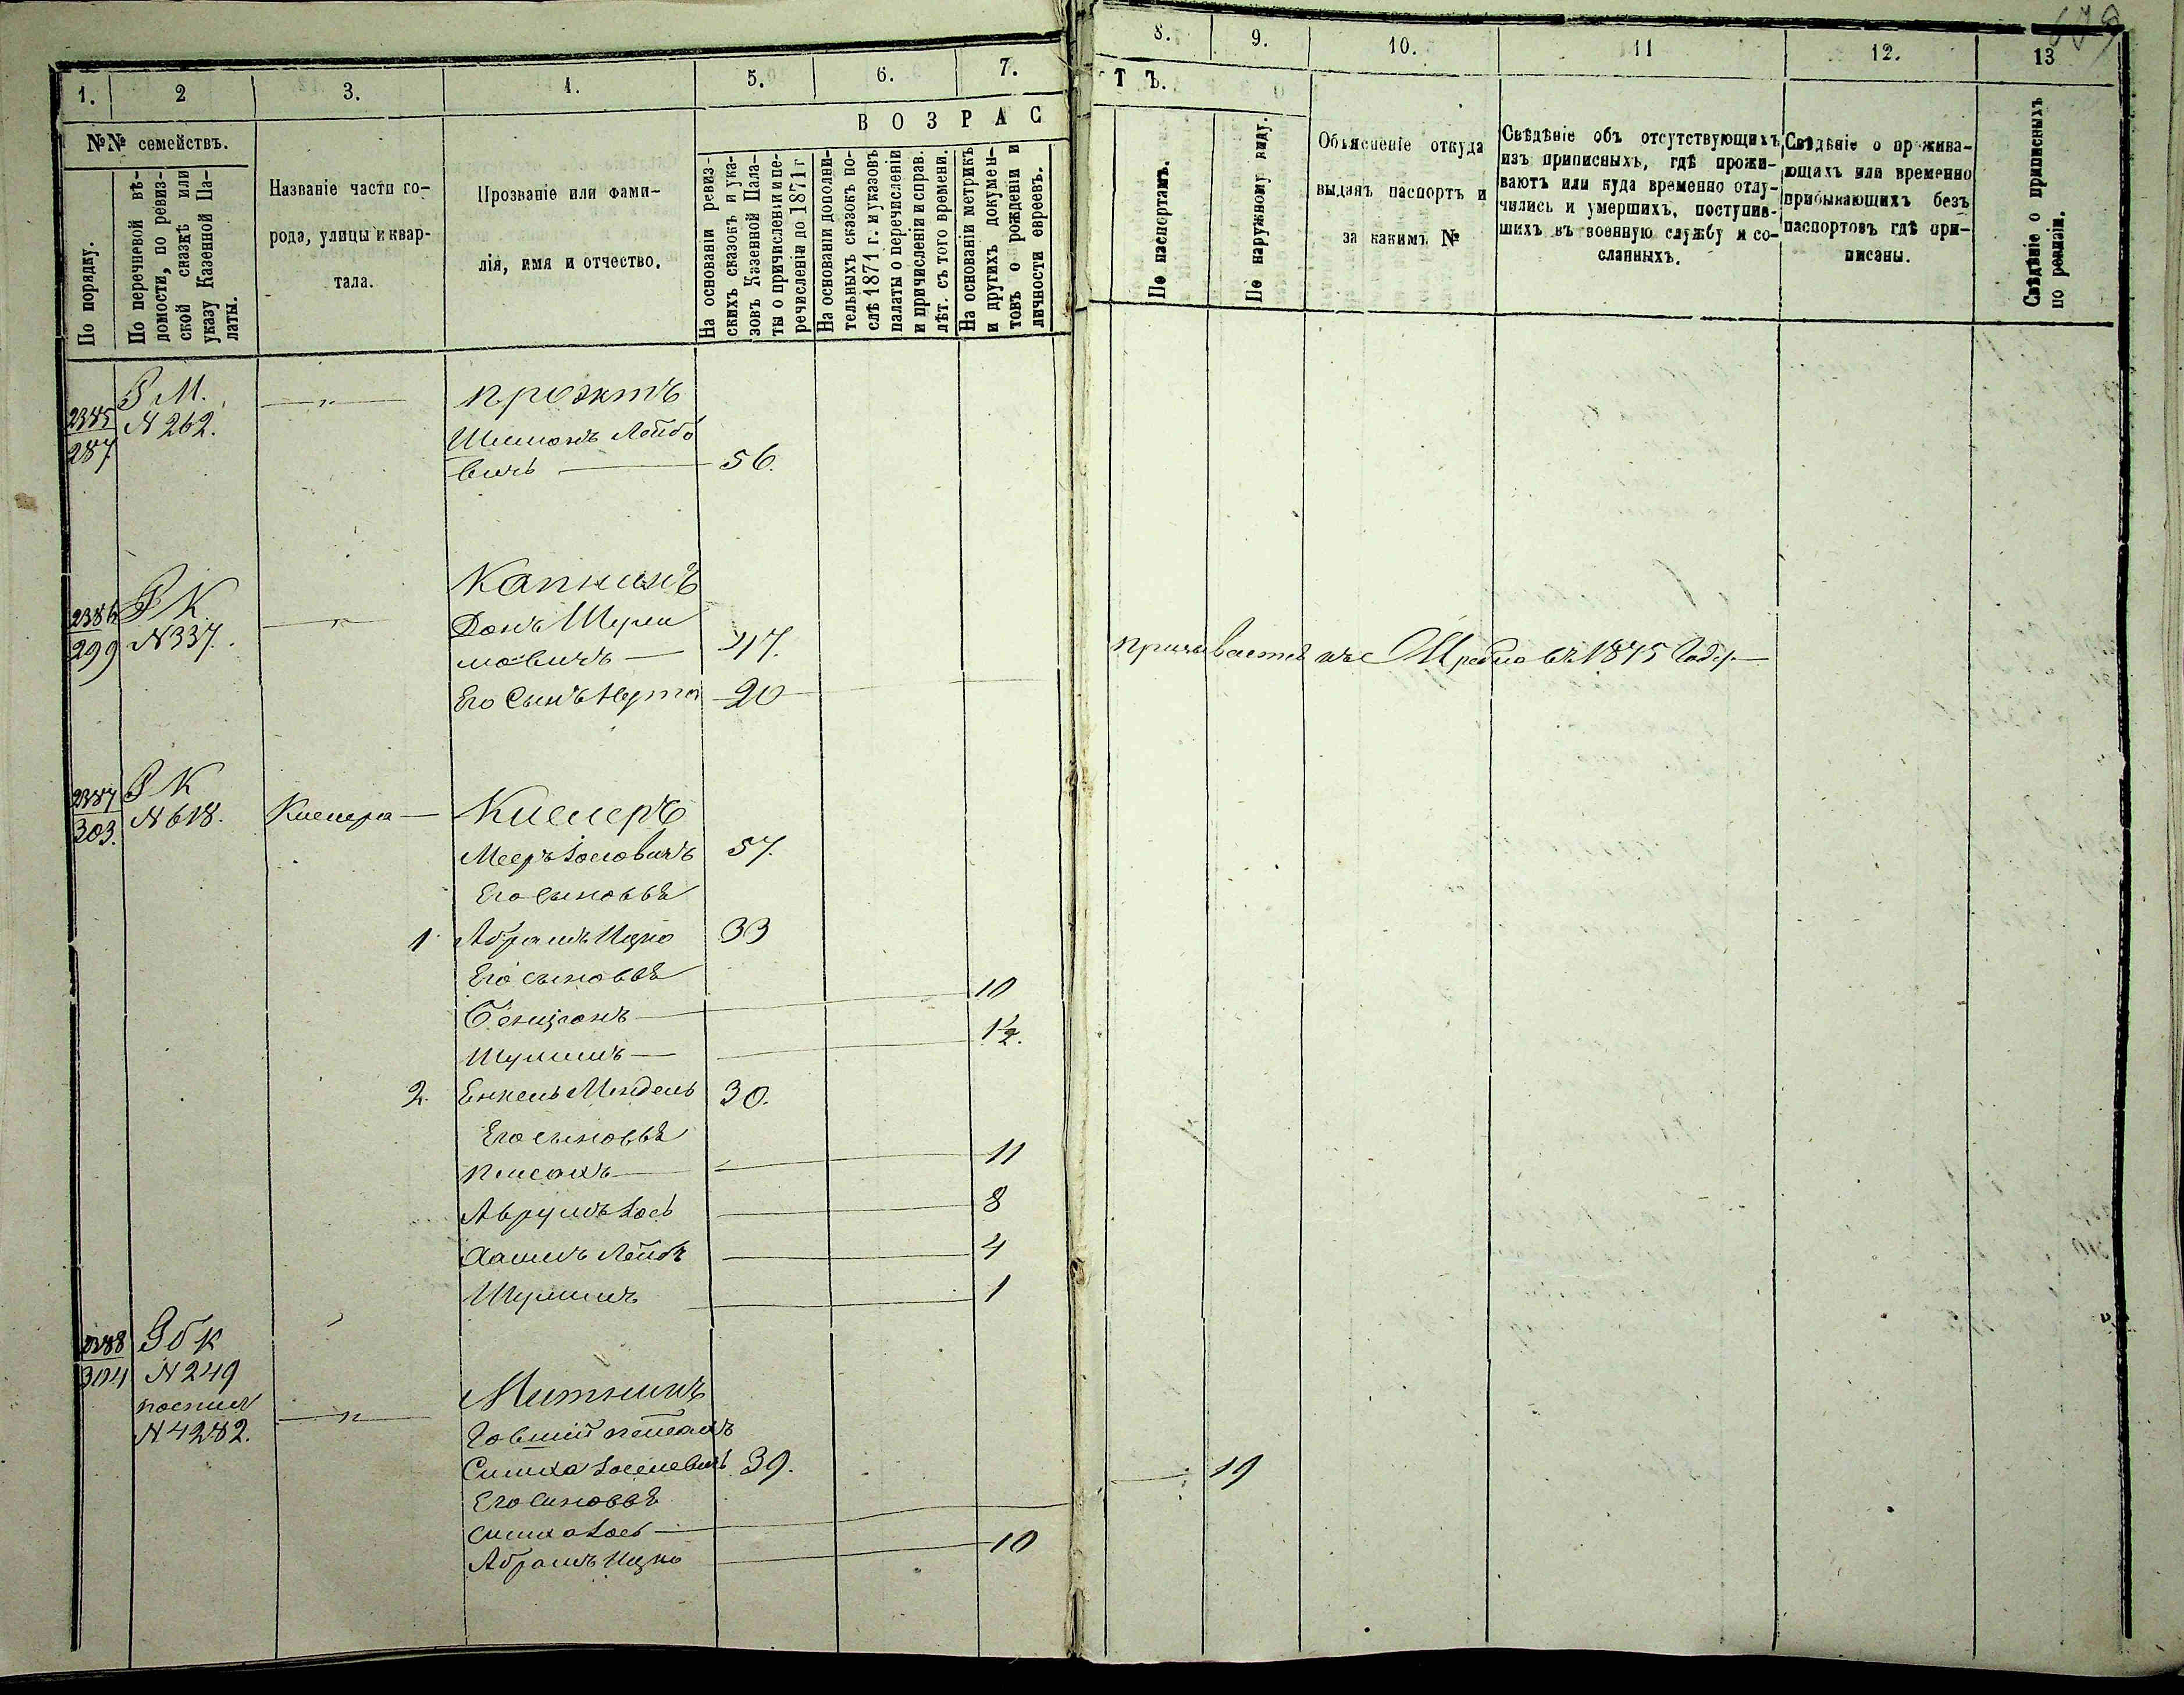 1.
2
3.
4.
5.
6.
7.
8.
9.
10.
11
12.
13
609
№№ семействъ.
По порядку.
По перечневой вѣ-
домости, по ревиз-
ской сказкѣ или
указу Казенной Па-
латы.
Названіе части го-
рода, улицы и квар-
тала.
Прозваніе или фами-
лія, имя и отчество.
ВОЗРАС
ТЪ.
На основаніи ревиз-
скихъ сказокъ и ука-
зовъ Казенной Пала-
ты о причисленіи и пе-
речисленіи до 1871 г
На основаніи дополни-
тельныхъ сказокъ по-
слѣ 1871 г. и указовъ
палаты о перечисленіи
и причисленіи и справ.
лѣт. съ того времени.
На основаніи метрикъ
и другихъ докумен-
товъ о рожденіи и
личности евреевъ.
По паспортамъ.
По наружному виду.
Объясненіе откуда
выданъ паспортъ и
за какимъ №
Свѣдѣніе объ отсутствующихъ
изъ приписныхъ, гдѣ прожи-
ваютъ или куда временно отлу-
чились и умершихъ, поступив-
шихъ въ военную службу и со-
сланныхъ.
Свѣдѣніе о прожива-
ющихъ или временно
прибывающихъ безъ
паспортовъ гдѣ при-
писаны.
Свѣдѣніе о приписныхъ
по ревизіи.
2385
287
Р М.
N 262.
Шимонъ Лейбо
вичъ 56.
2386
299
Р К
N 337.
Капнинъ
мовичъ 47.
Его Сынъ Нута 20
въ 1875 Году
2387
303.
Р К
N 618.
Мееръ Іосіовичъ 57.
Его сыновья
1 Абрамъ Ицко 33
Его сыновья
Бенціонъ 10
Шулимъ 1½.
2. Енкель Мендель 30.
Его сыновья
Пейсахъ 11
Аврумъ Іось 8
Хаимъ Лейбъ 4
Шулимъ 1
2388
304
Об К
N 249
N 4282.
Митникъ
Симха 39.
Его сыновья
Симха Іось 19
Абрамъ Ицко 10